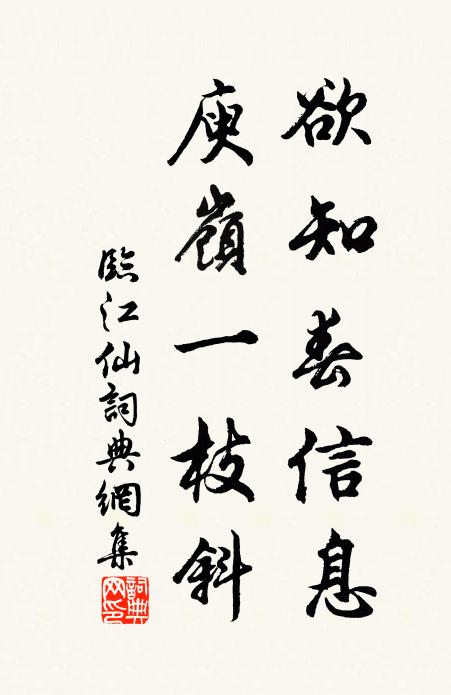 欲知春信息
庾嶺一枝斜
臨江仙詞典網集
詞典網印